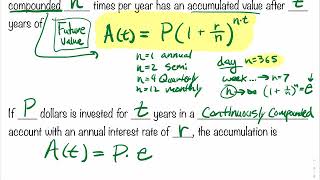 compounded n times per year has an accumulated value after t
years of
Future Value
A(t) = P(1 + r/n)^(n·t)
n=1 annual
n=2 semi
n=4 Quarterly
n=12 monthly
day n=365
week... → n=7
n → ∞ (1+1/n)^n = e
If P dollars is invested for t years in a Continuously Compounded
account with an annual interest rate of r, the accumulation is
A(t) = P·e